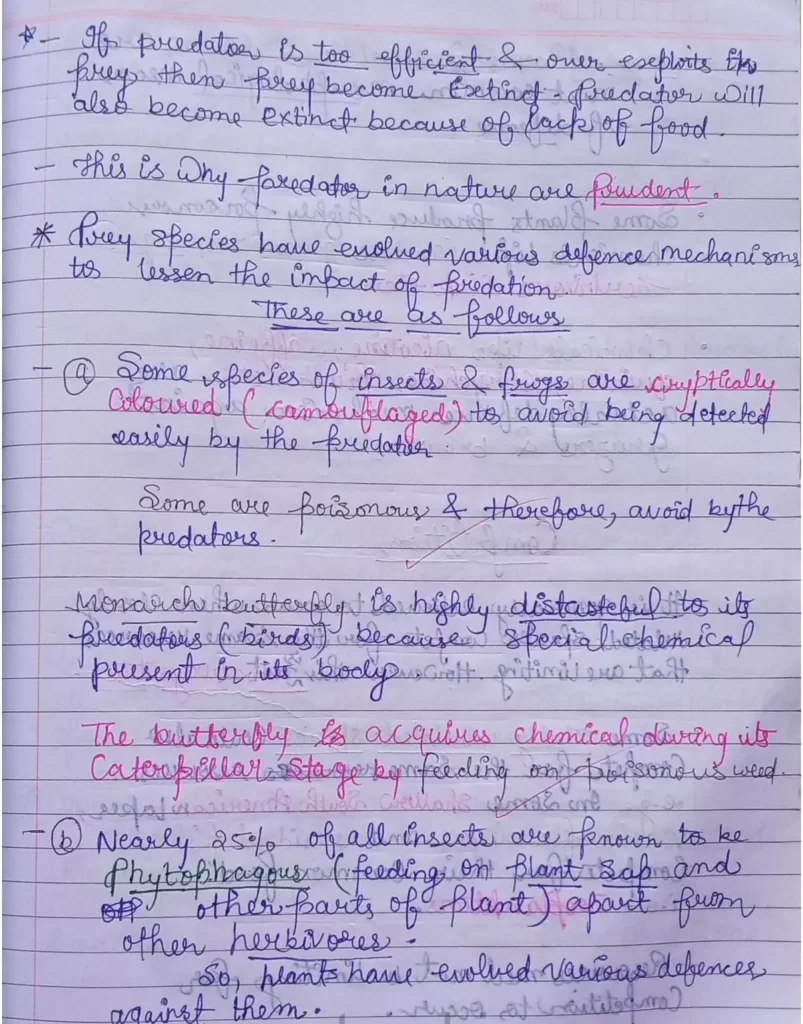 * - If predator is too efficient & over exploits its
prey then prey become Extinct - predator will
also become extinct because of lack of food.
- This is why predator in nature are prudent.
* Prey species have evolved various defence mechanisms
to lessen the impact of predation.
These are as follows
- (a) Some species of insects & frogs are cryptically
Coloured (camouflaged) to avoid being detected
easily by the predator.
Some are poisonous & therefore, avoid by the
predators.
Monarch butterfly is highly distasteful to its
predators (birds) because special chemical
present in its body.
The butterfly is acquires chemical during its
Caterpillar stage by feeding on poisonous weed.
- (b) Nearly 25% of all insects are known to be
Phytophagous (feeding on plant sap and
other parts of plant) apart from
other herbivores.
So, plants have evolved various defences
against them.